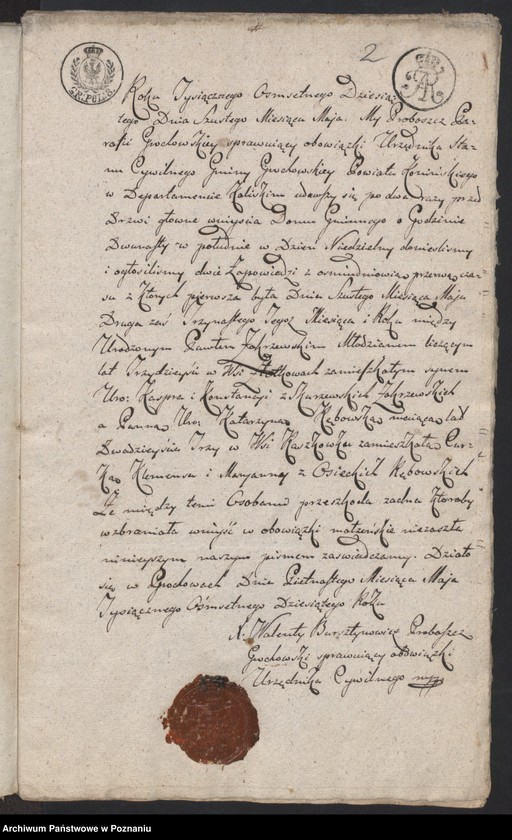 2
GR:POL:8.
Roku Tysiącznego Osmsetnego Dziesią-
tego Dnia Szustego Miesiąca Maja. My Proboszcz Pa-
rafii Grochowskiey sprawuiący obowiązki Urzędnika Sta-
nu Cywilnego Gminy Grochowskiey Powiatu Konińskiego
w Departamencie Kaliskim udawszy się po dwa razy przed
Drzwi głowne wniyscia Domu Gminnego o Godzinie
Dwunasty w południe w Dzień Niedzielny donieslismy
i ogłosiliśmy dwie Zapowiedzi z osmiudniową przerwą cza-
su z ktorych pierwsza była Dnia Szustego Miesiąca Maja
Druga zaś Trzynastego Tegoż Miesiąca i Roku między
Urodzonym Pawłem Jakrzewskim Młodzianem liczącym
lat Trzydzieści w Wsi zamieszkałym synem
Uro: Kaspra i Konstancyi z Skarzewskich Jakrzewskich
a Panną Uro: Katarzyną Kębowską maiącą lat
Dwadzieścia Trzy w Wsi Kaszkowka zamieszkałą Cur-
ką Klemensa i Maryanny z Osieckich Kębowskich
Że między temi Osobami przeszkoda żadna ktoraby
wzbraniała wniyść w obowiązki małżenskie niezaszła
ninieyszym naszym pismem zaświadczamy. Działo
się w Grochowach Dnia Pietnastego Miesiąca Maja
Tysiącznego Osmsetnego Dziesiątego Roku
X. Walenty Bursztynowicz Proboszcz
Grochowski sprawuiący obowiązki
Urzędnika Cywilnego mpp
Archiwum Państwowe w Poznaniu